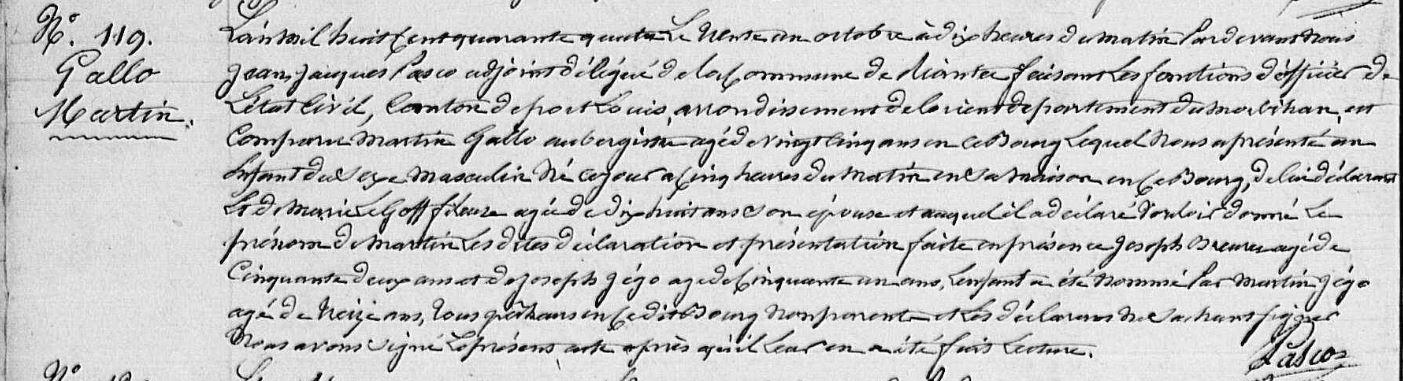 N°. 119.
Gallo
Martin.
L'an mil huit cent quarante quatre Le trente un octobre à dix heures du matin Pardevant Nous
Jean, Jacques Pasco adjoint délégué de la Commune de Riantec faisant les fonctions d'officier de
L'état Civil, Canton de port Louis, arrondissement de lorient departement du morbihan, est
Comparu Martin Gallo aubergiste agé de vingt Cinq ans en ce Bourg Lequel Nous a présenté un
Enfant du Sexe Masculin Né ce jour a Cinq heures du Matin en Sa Maison en Ce Bourg, de lui déclarant
Et de Marie Le Goff fileuse agée de dix huit ans Son épouse et auquel il a déclaré Vouloir donné Le
prénom de Martin Les dites déclaration et présentation faite en présence Joseph agé de
Cinquante deux ans et de Joseph Jégo agé de Cinquante un ans, L'enfant a été Nommé Par Martin Jégo
agé de treize ans, tous in Ce dit Bourg Non parent et Les déclarans Ne Sachant Signer
Nous avons Signé Le présent acte après qu'il Leur en a été fait Lecture.
Pasco